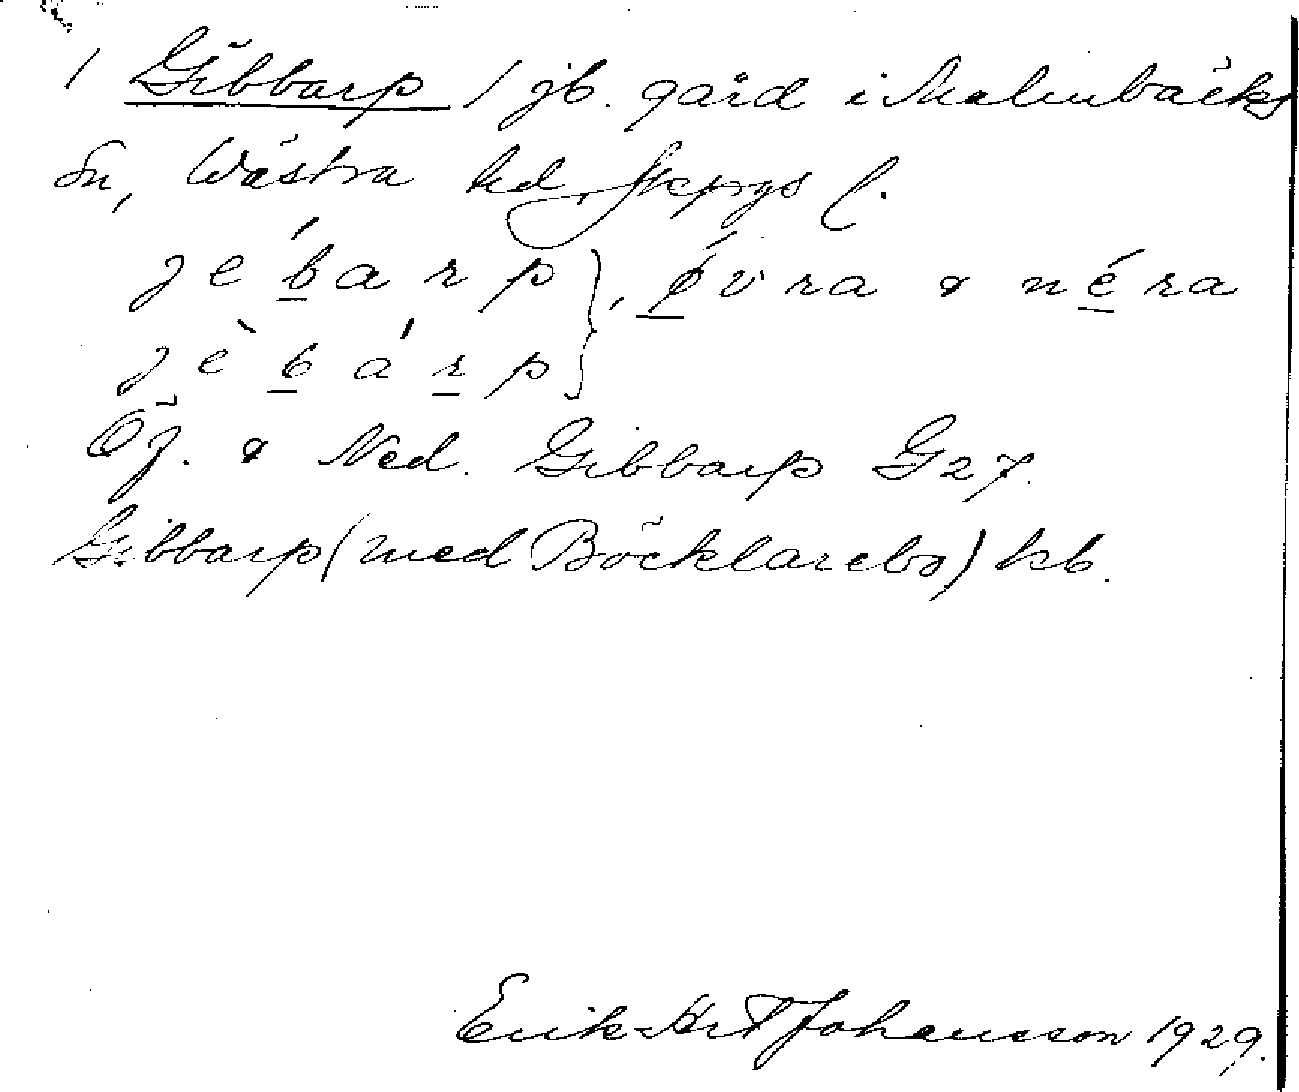 / Gibbarp / jb. gård i Malmbäcks
sn, Västra hd, Jkpgs l.
je b́ a r p }, ǿ v r a & n é r a
j è b á r p }
Öf. & Ned. Gibbarp G 27.
Gibbarp (med Böcklarebo) kb.
Erik Johansson 1929.